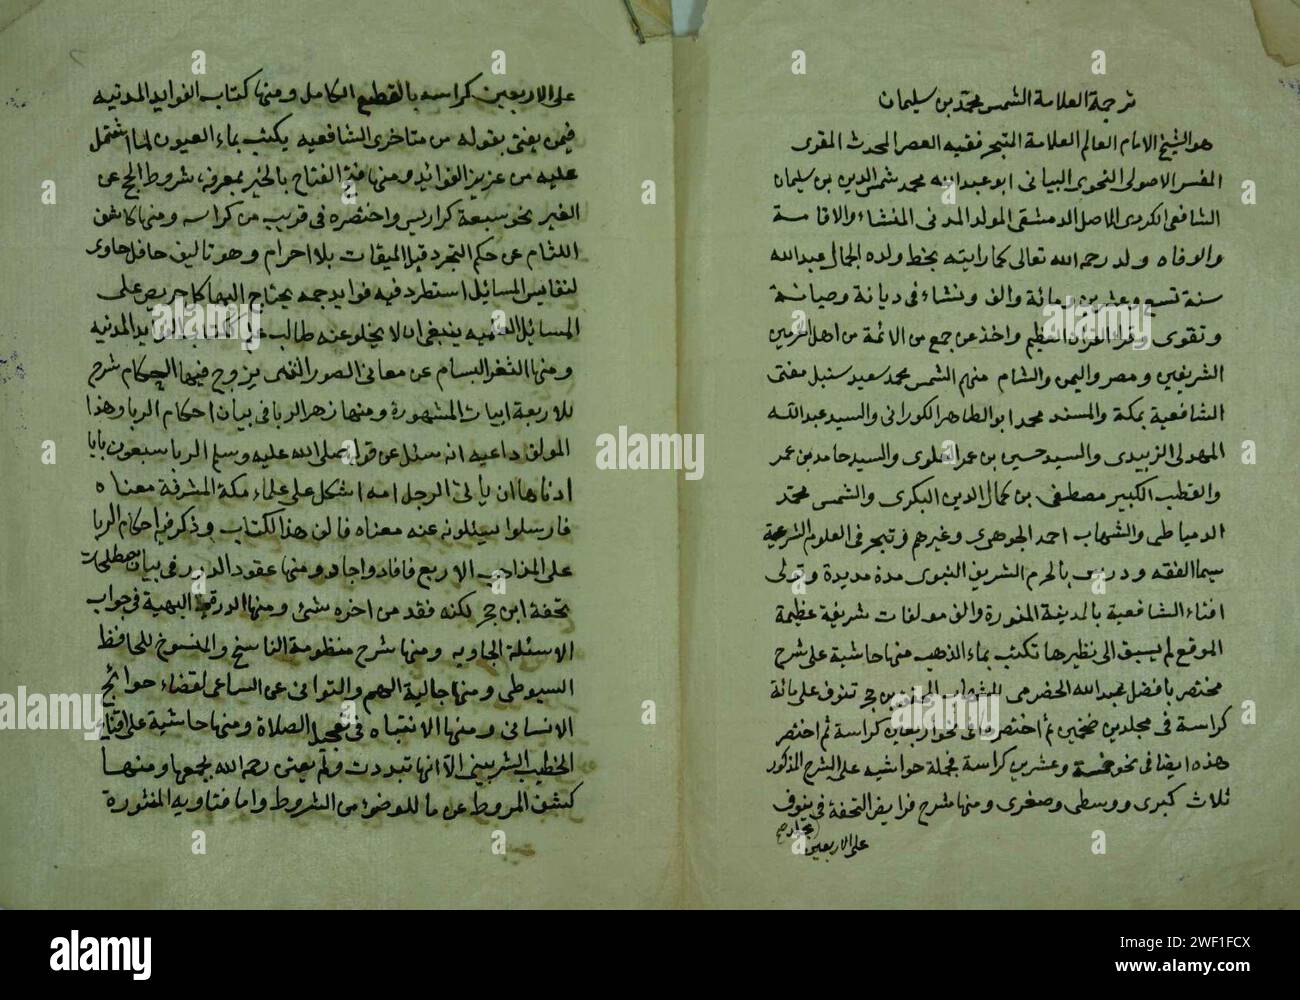 ترجمة العلامة الشمس محمد بن سليمان
هو الشيخ الامام العالم العلامة المتبحر فقيه العصر المحدث المقرى
المفسر الاصولى النحوى البيانى ابو عبد الله محمد شمس الدين بن سليمان
الشافعى الكردى الاصل الدمشقى المولد المدنى المنشاء والاقامة
والوفاه ولد رحمه الله تعالى كما رايته بخط ولده الجمال عبد الله
سنة تسع وعشرين ومائة والف ونشاء فى ديانة وصيانة
وتقوى وقراء القران العظيم واخذ عن جمع من الائمة من اهل الحرمين
الشريفين ومصر واليمن والشام منهم الشمس محمد سعيد سنبل مفتى
الشافعية بمكة والمسند محمد ابو الطاهر الكورانى والسيد عبد الله
المهدلى الزبيدى والسيد حسين بن عمر العلوى والسيد حامد بن عمر
والقطب الكبير مصطفى بن كمال الدين البكرى والشمس محمد
الدمياطى والشهاب احمد الجوهرى وغيرهم وتبحر فى العلوم الشرعية
سيما الفقه ودرس بالحرم الشريف النبوى مدة مديدة وتولى
افتاء الشافعية بالمدينة المنورة والف مولفات شريفة عظيمة
الموقع لم يسبق الى نظيرها تكتب بماء الذهب منها حاشية على شرح
مختصر بافضل عبد الله الحضرمى للشهاب المحقق بن حجر تنوف على مائة
كراسة فى مجلدين ضخمين ثم اختصرها فى نحو اربعين كراسة ثم اختصر
هذه ايضا فى نحو خمسة وعشرين كراسة فجملة حواشيه على الشرح المذكور
ثلاث كبرى ووسطى وصغرى ومنها شرح فرايض التحفة فى ينوف
على الاربعين
على الاربعين كراسه بالقطع الكامل ومنها كتاب الفوايد المدنيه
فيمن يفتى بقوله من متاخرى الشافعيه يكتب بماء العيون لما اشتمل
عليه من عزيز الفوائد ومنها فتح الفتاح بالخير بمعرفة شروط الحج عن
الغير نحو سبعة كراريس واختصره فى قريب من كراسه ومنها كاشف
اللثام عن حكم التجرد قبل الميقات بلا احرام وهو تاليف حافل حاوى
لنفايس المسائل استطرد فيه فوايد جمه يحتاج اليها كل حريص على
المسائل العلميه ينبغى ان لا يخلو عنه طالب علم ككتاب الفوايد المدنيه
ومنها الثغر البسام عن معانى الصور التى يزوج فيها الحكام شرح
للاربعة ابيات المشهورة ومنها زهر الربا فى بيان احكام الربا وهذا
المولف داعيه انه سئل عن قوله صلى الله عليه وسلم الربا سبعون بابا
ادناها ان ياتى الرجل امه اشكل على علماء مكة المشرفة معناه
فارسلوا يسئلونه عنه معناه فالف هذا الكتاب وذكر فيه احكام الربا
على المذاهب الاربع فافاد واجاد ومنها عقود الدرر فى بيان مصطلحات
تحفة ابن حجر لكنه فقد من اخره شئ ومنها الدرة البهية فى جواب
الاسئلة الجاويه ومنها شرح منظومة الناسخ والمنسوخ للحافظ
السيوطى ومنها جالية الهم والتوانى عن الساعى لقضاء حوائج
الانسانى ومنها الانتباه فى تعجيل الصلاة ومنها حاشية على اقناع
الخطيب الشربينى الا انها تبددت ولم يعتن رحمه الله بجمعها ومنها
كشف المروط عن ما للوضوء من الشروط واما فتاويه المنثورة
alamy
Image ID: 2WF1FCX
www.alamy.com